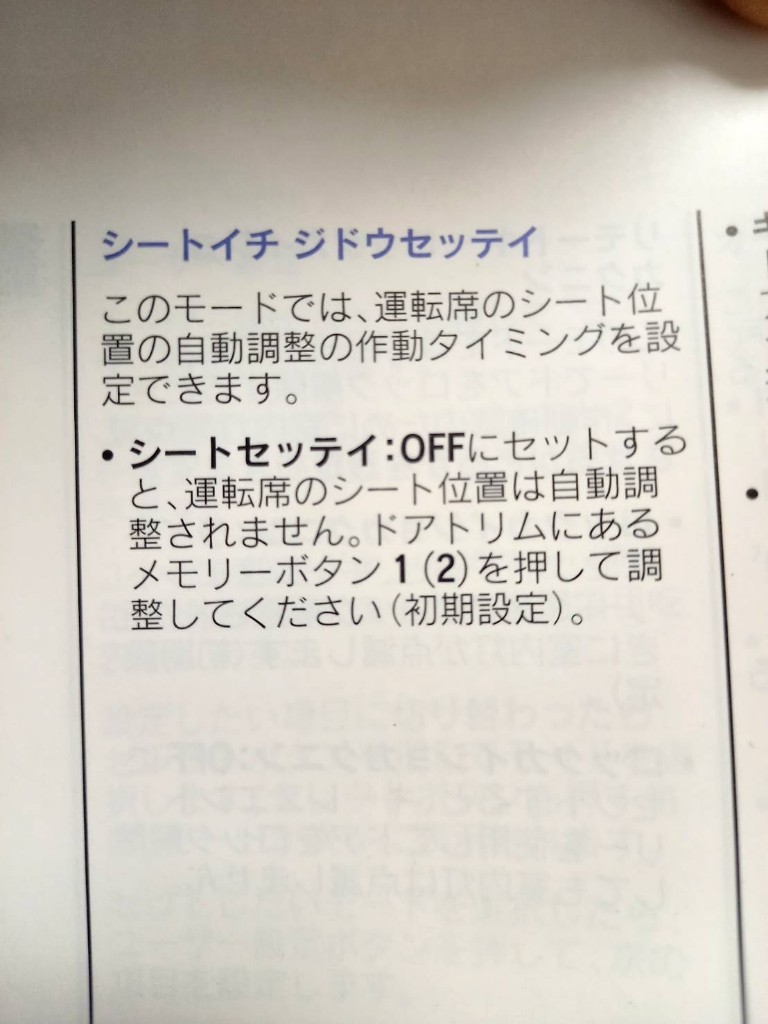 シートイチ ジドウセッテイ
このモードでは、運転席のシート位
置の自動調整の作動タイミングを設
定できます。
• シートセッテイ：OFFにセットする
と、運転席のシート位置は自動調
整されません。ドアトリムにある
メモリーボタン 1（2）を押して調
整してください（初期設定）。